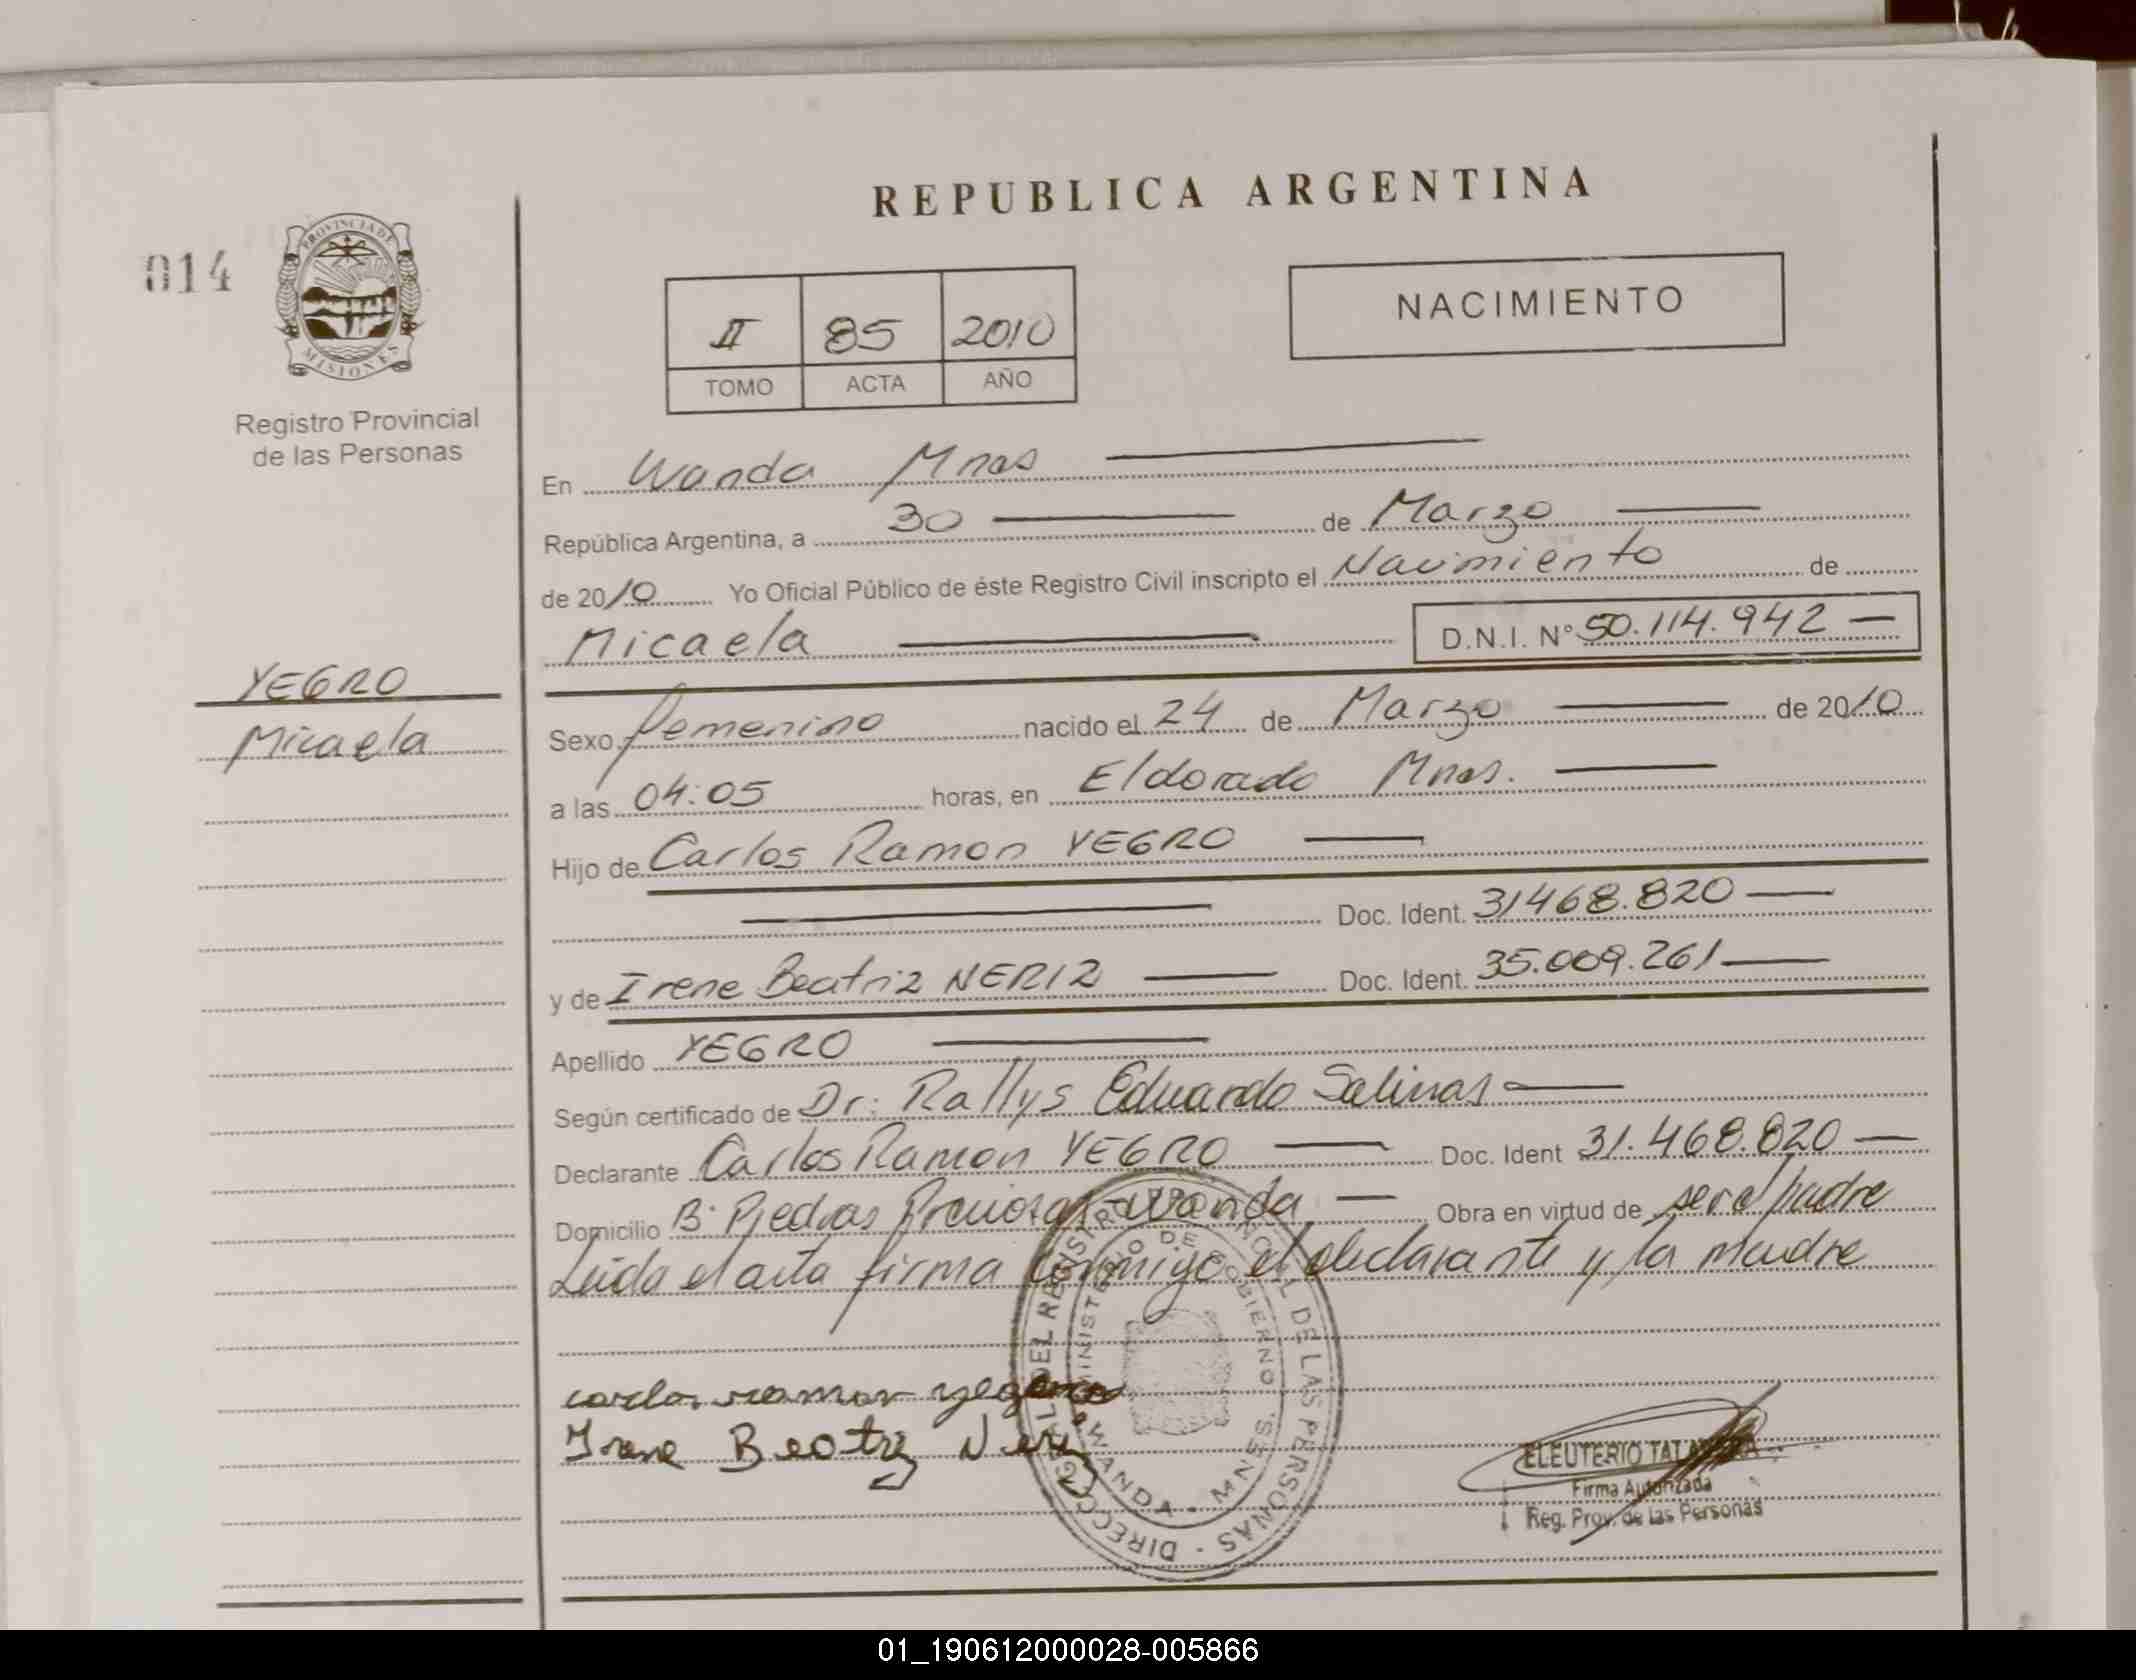 REPUBLICA ARGENTINA
014
PROVINCIA DE
MISIONES
Registro Provincial
de las Personas
II 85 2010
TOMO ACTA AÑO
NACIMIENTO
En Wanda Mnes
República Argentina, a 30 de Marzo
de 2010 Yo Oficial Público de éste Registro Civil inscripto el Nacimiento de
Micaela D.N.I. N° 50.114.942
YEGRO
Micaela
Sexo femenino nacido el 24 de Marzo de 2010
a las 04:05 horas, en Eldorado Mnes.
Hijo de Carlos Ramon YEGRO
Doc. Ident. 31468.820
y de Irene Beatriz NERIZ Doc. Ident. 35.009.261
Apellido YEGRO
Según certificado de Dr: Rallys Eduardo Salinas
Declarante Carlos Ramon YEGRO Doc. Ident 31.468.820
Domicilio B: Piedras Preciosas - Wanda Obra en virtud de ser el padre
Leida el acta firma conmigo el declarante y la madre
carlos ramon yegro
Irene Beatriz Neriz
MINISTERIO DE GOBIERNO
WANDA - MNES.
ELEUTERIO
Firma Autorizada
Reg. Prov. de las Personas
01_190612000028-005866